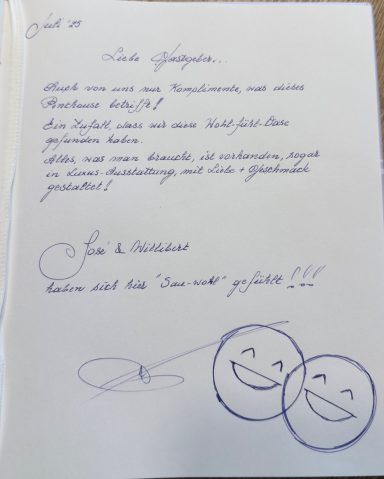 Juli '25
Liebe Gastgeber...
Auch von uns nur Komplimente, was dieses
Penthouse betrifft!
Ein Zufall, dass wir diese Wohl-fühl-Oase
gefunden haben.
Alles, was man braucht, ist vorhanden, sogar
in Luxus-Ausstattung, mit Liebe + Geschmack
gestaltet!
José & Willibert
haben sich hier "Sau-wohl" gefühlt!!!